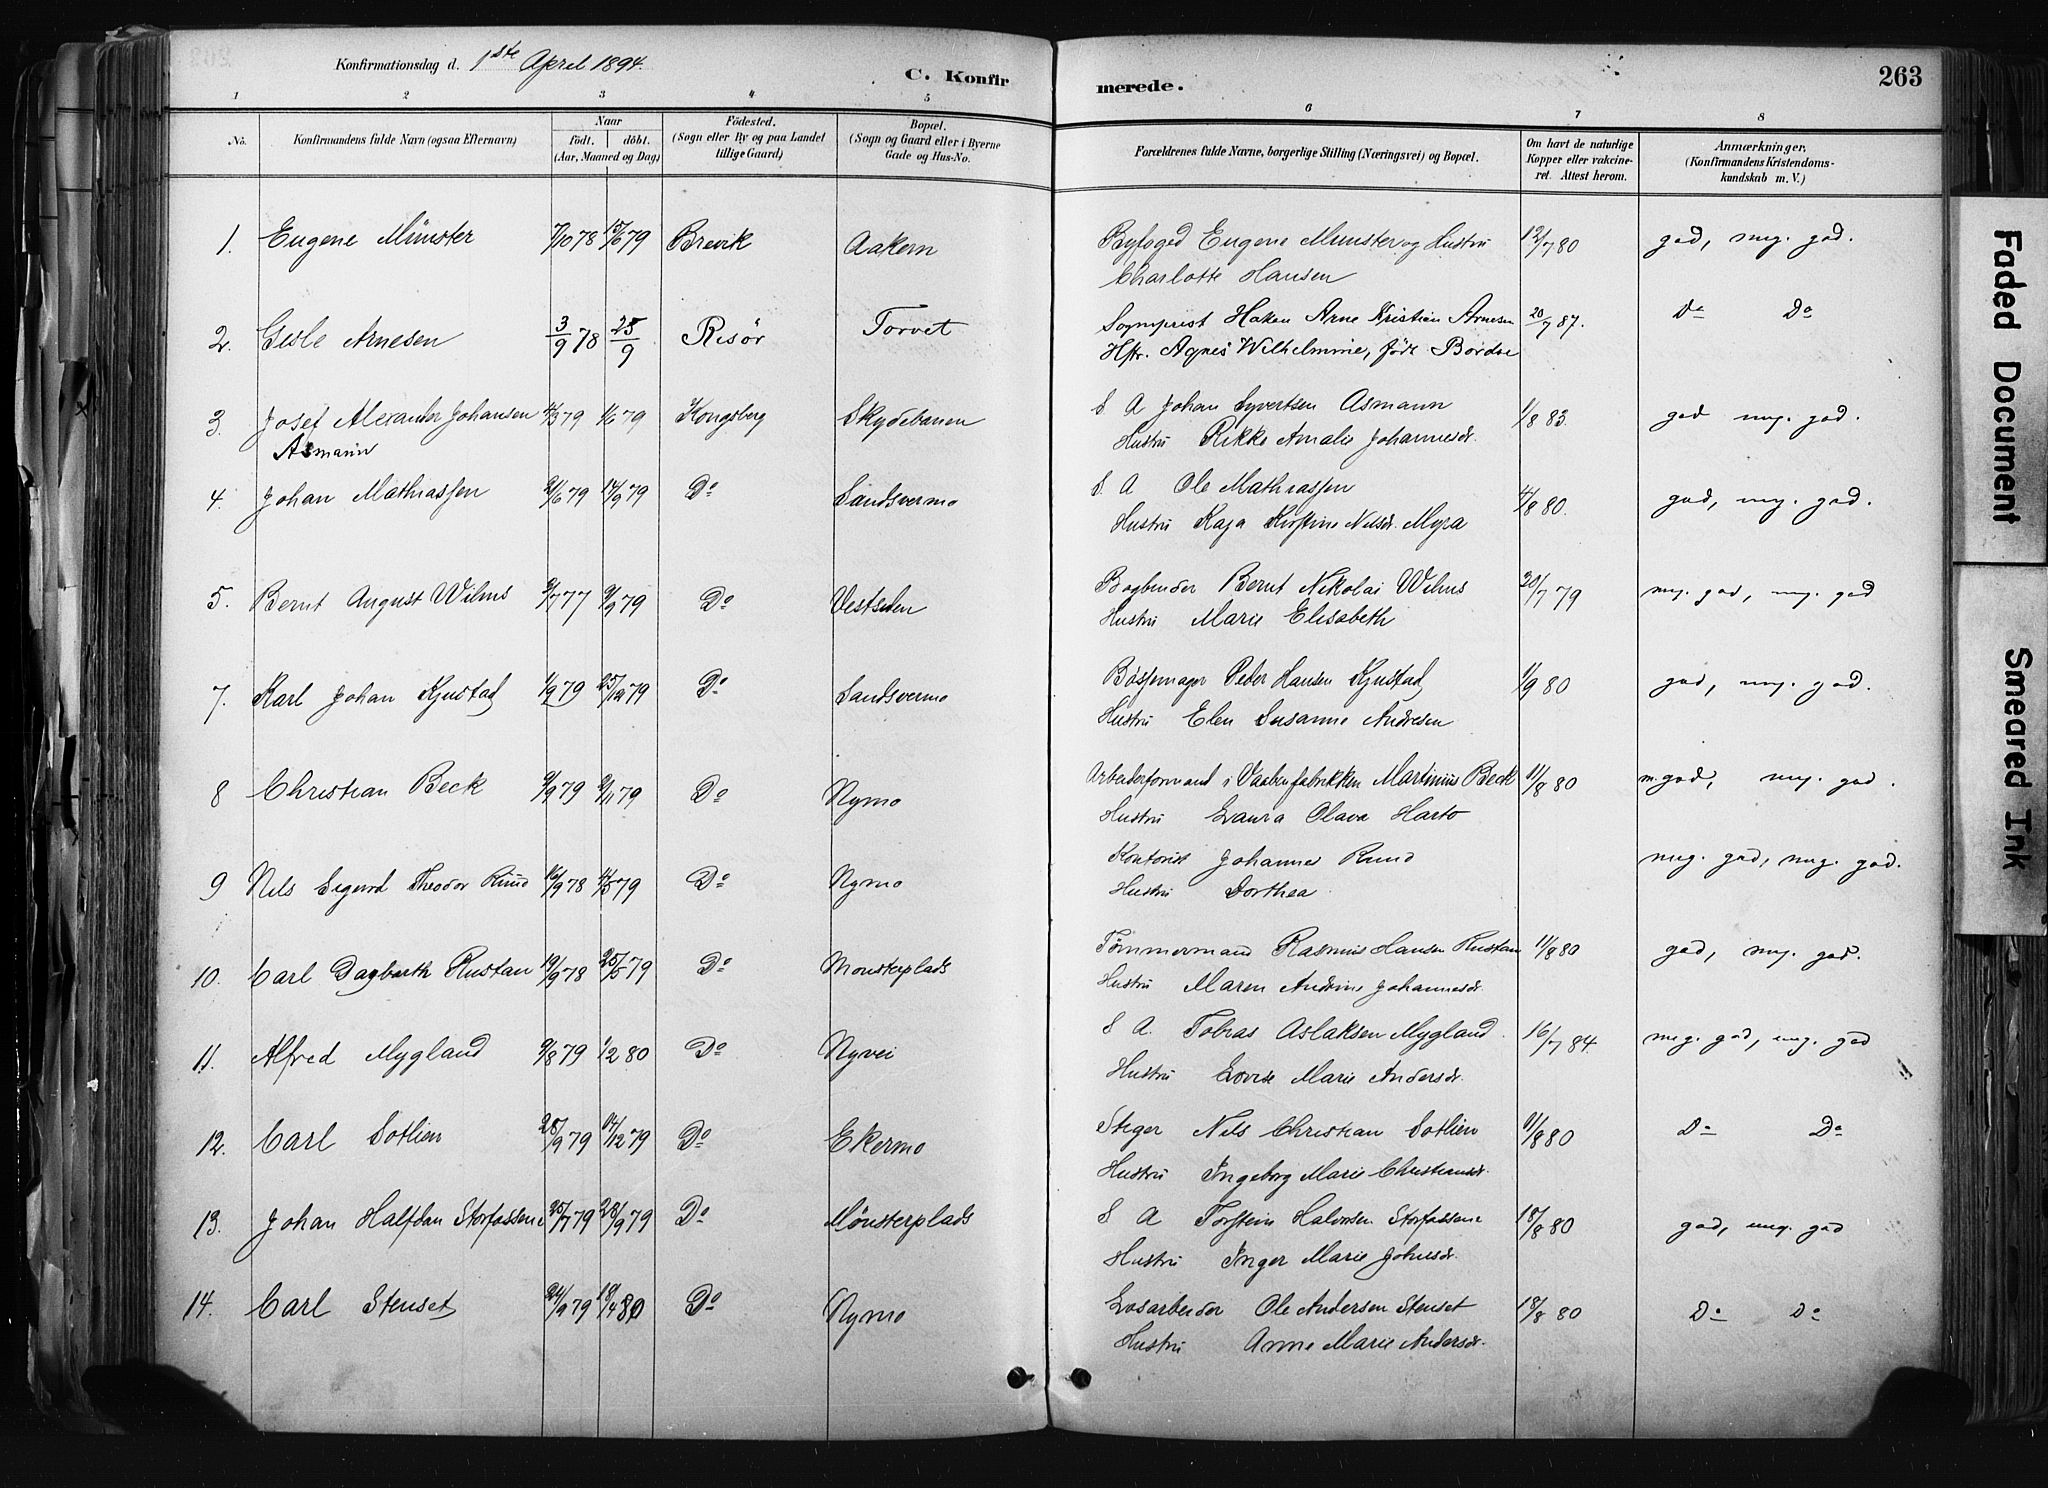 Konfirmationsdag d. 1ste April 1894.
C. Konfir
merede.
263
1 2 3 4 5 6 7 8
No.
Konfirmandens fulde Navn (ogsaa Efternavn)
Naar
født. døbt.
(Aar, Maaned og Dag)
Fødested.
(Sogn eller By og paa Landet
tillige Gaard)
Bopæl.
(Sogn og Gaard eller i Byerne
Gade og Hus-No.
Forældrenes fulde Navne, borgerlige Stilling (Næringsvei) og Bopæl.
Om havt de naturlige
Kopper eller vakcine-
ret. Attest herom.
Anmærkninger.
(Konfirmandens Kristendoms-
kundskab m. V.)
1. Eugene Münster 7/10 78 15/6 79 Brevik Aakern Byfoged Eugene Munster og Hustru 12/7 80 god, meg. god.
Charlotte Hansen
2. Gisle Arnesen 3/9 78 25/9 Risör Torvet Sogneprest Haken Arne Kristian Arnesen 20/7 87. Do Do
Hstr. Agnes Wilhelmine, föde Bordoe
3. Josef Alexander Johansen 4/3 79 1/6 79 Kongsberg Skydebanen S. A Johan Syvertsen Asmann 1/8 83. god meg. god.
Asmann
Hustru Rikke Amalie Johannesdr.
4. Johan Mathiassen 21/6 79 14/9 79 Do Sandsvermo S. A Ole Mathiassen 4/8 80. god, meg. god.
Hustru Kaja Kirstine Nilsdr. Myra
5. Bernt August Wilms 2/7 77 9/9 79 Do Vestsiden Bogbinder Bernt Nikolai Wilms 20/7 79 meg. god, meg. god
Hustru Marie Elisabeth
7. Karl Johan Kjustad 1/9 79 25/12 79 Do Sandsvermo Bøssemager Peder Hansen Kjustad 1/9 80 god, meg. god.
Hustru Elen Susanne Andresen
8 Christian Beck 9/9 79 2/11 79 Do Nymo Arbeiderformand i Vaabenfabrikken Martinius Beck 11/8 80 m. god, meg. god.
Hustru Laura Olava Harto
9 Nils Sigurd Theodor Ruud 16/9 78 4/5 79 Do Nymo Kontorist Johannes Ruud meg. god, meg. god.
Hustru Dorthea
10. Carl Dagbarth Rustan 19/9 78 25/5 79 Do Monsterplads Tømmermand Rasmus Hansen Rustan 11/8 80 god, meg. god.
Hustru Maren Andrine Johannesdr.
11. Alfred Mygland 9/8 79 1/2 80 Do Nyvei S A. Tobias Aslaksen Mygland 16/7 84. meg. god, meg. god
Hustru Lovise Marie Andersdr.
12. Carl Sotlien 28/9 79 14/12 79 Do Ekermo Stiger Nils Christian Sotlien 11/8 80 Do Do
Hustru Ingeborg Marie Christiansdr.
13. Johan Halfdan Storfossene 25/7 79 28/9 79 Do Mønsterplads S A Torstein Halvorsen Storfossene 18/8 80 god, meg. god
Hustru Inger Marie Johnsdr.
14. Carl Stenset 24/9 79 18/4 80 Do Nymo Løsarbeider Ole Andersen Stenset 18/8 80 Do Do
Hustru Anne Marie Andersdr.
Faded Document
Smeared Ink